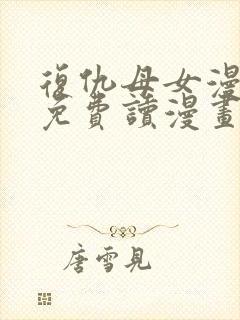 復仇母女漫
免費讀漫畫
唐雪見